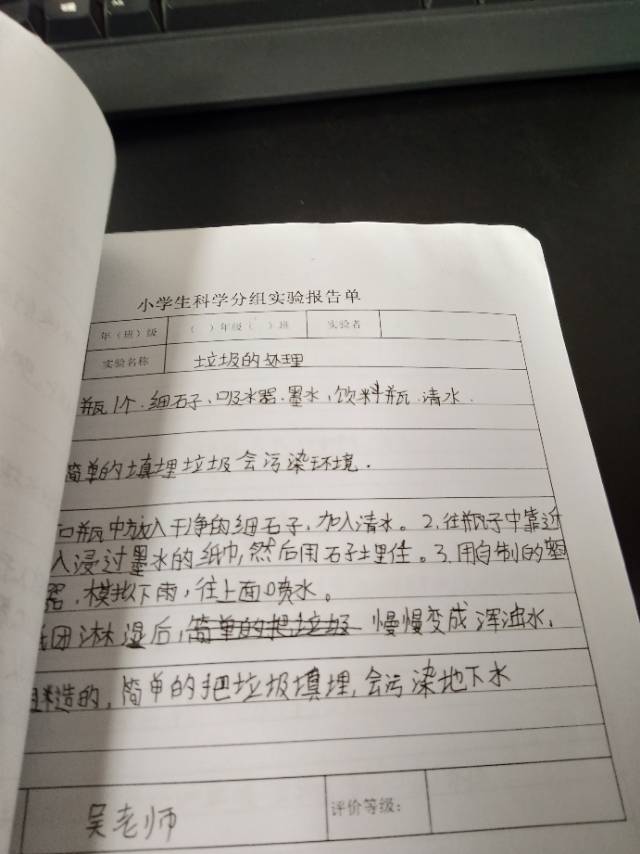 小学生科学分组实验报告单
年（班）级 （ ）年级（ ）班 实验者
实验名称 垃圾的处理
瓶1个．细石子、吸水器．墨水，饮料瓶．清水．
简单的填埋垃圾会污染环境．
口瓶中放入干净的细石子，加入清水。2.往瓶子中靠近
入浸过墨水的纸巾，然后用石子埋住。3.用自制的塑
器，模拟下雨，往上面喷水。
纸团淋湿后，简单的把垃圾 慢慢变成浑浊水．
造的，简单的把垃圾填埋，会污染地下水
吴老师 评价等级：